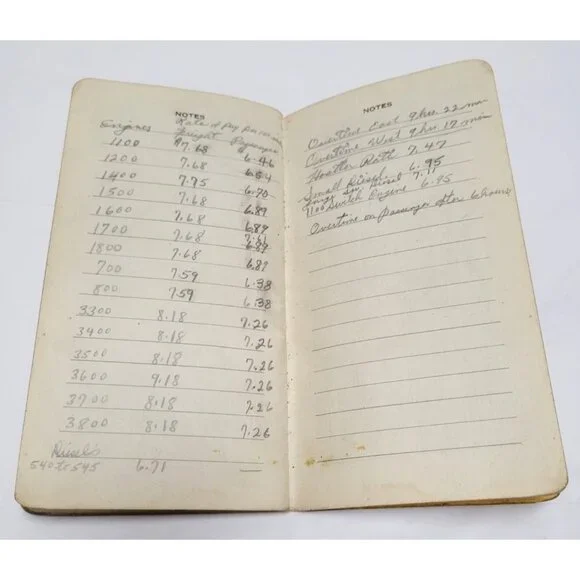 NOTES
Engines Rate of pay per 100 m
Freight Passenger
1100 $7.68 $ 6.46
1200 7.68 6.54
1400 7.75 6.70
1500 7.68
1600 7.68 6.87
1700 7.68 6.87
1800 7.68 6.87
700 7.59 6.38
800 7.59 6.38
3300 8.18 7.26
3400 8.18 7.26
3500 8.18 7.26
3600 9.18 7.26
3700 8.18 7.26
3800 8.18 7.26
Diesels
540 to 545 6.71
NOTES
Overtime East 9 hrs. 22 min
Overtime West 9 hrs 17 min
Hostler Rate 7.47
Small Diesel 6.95
Diesel 7.11
1100 Switch Engine 6.95
Overtime on Passenger after 6 hours